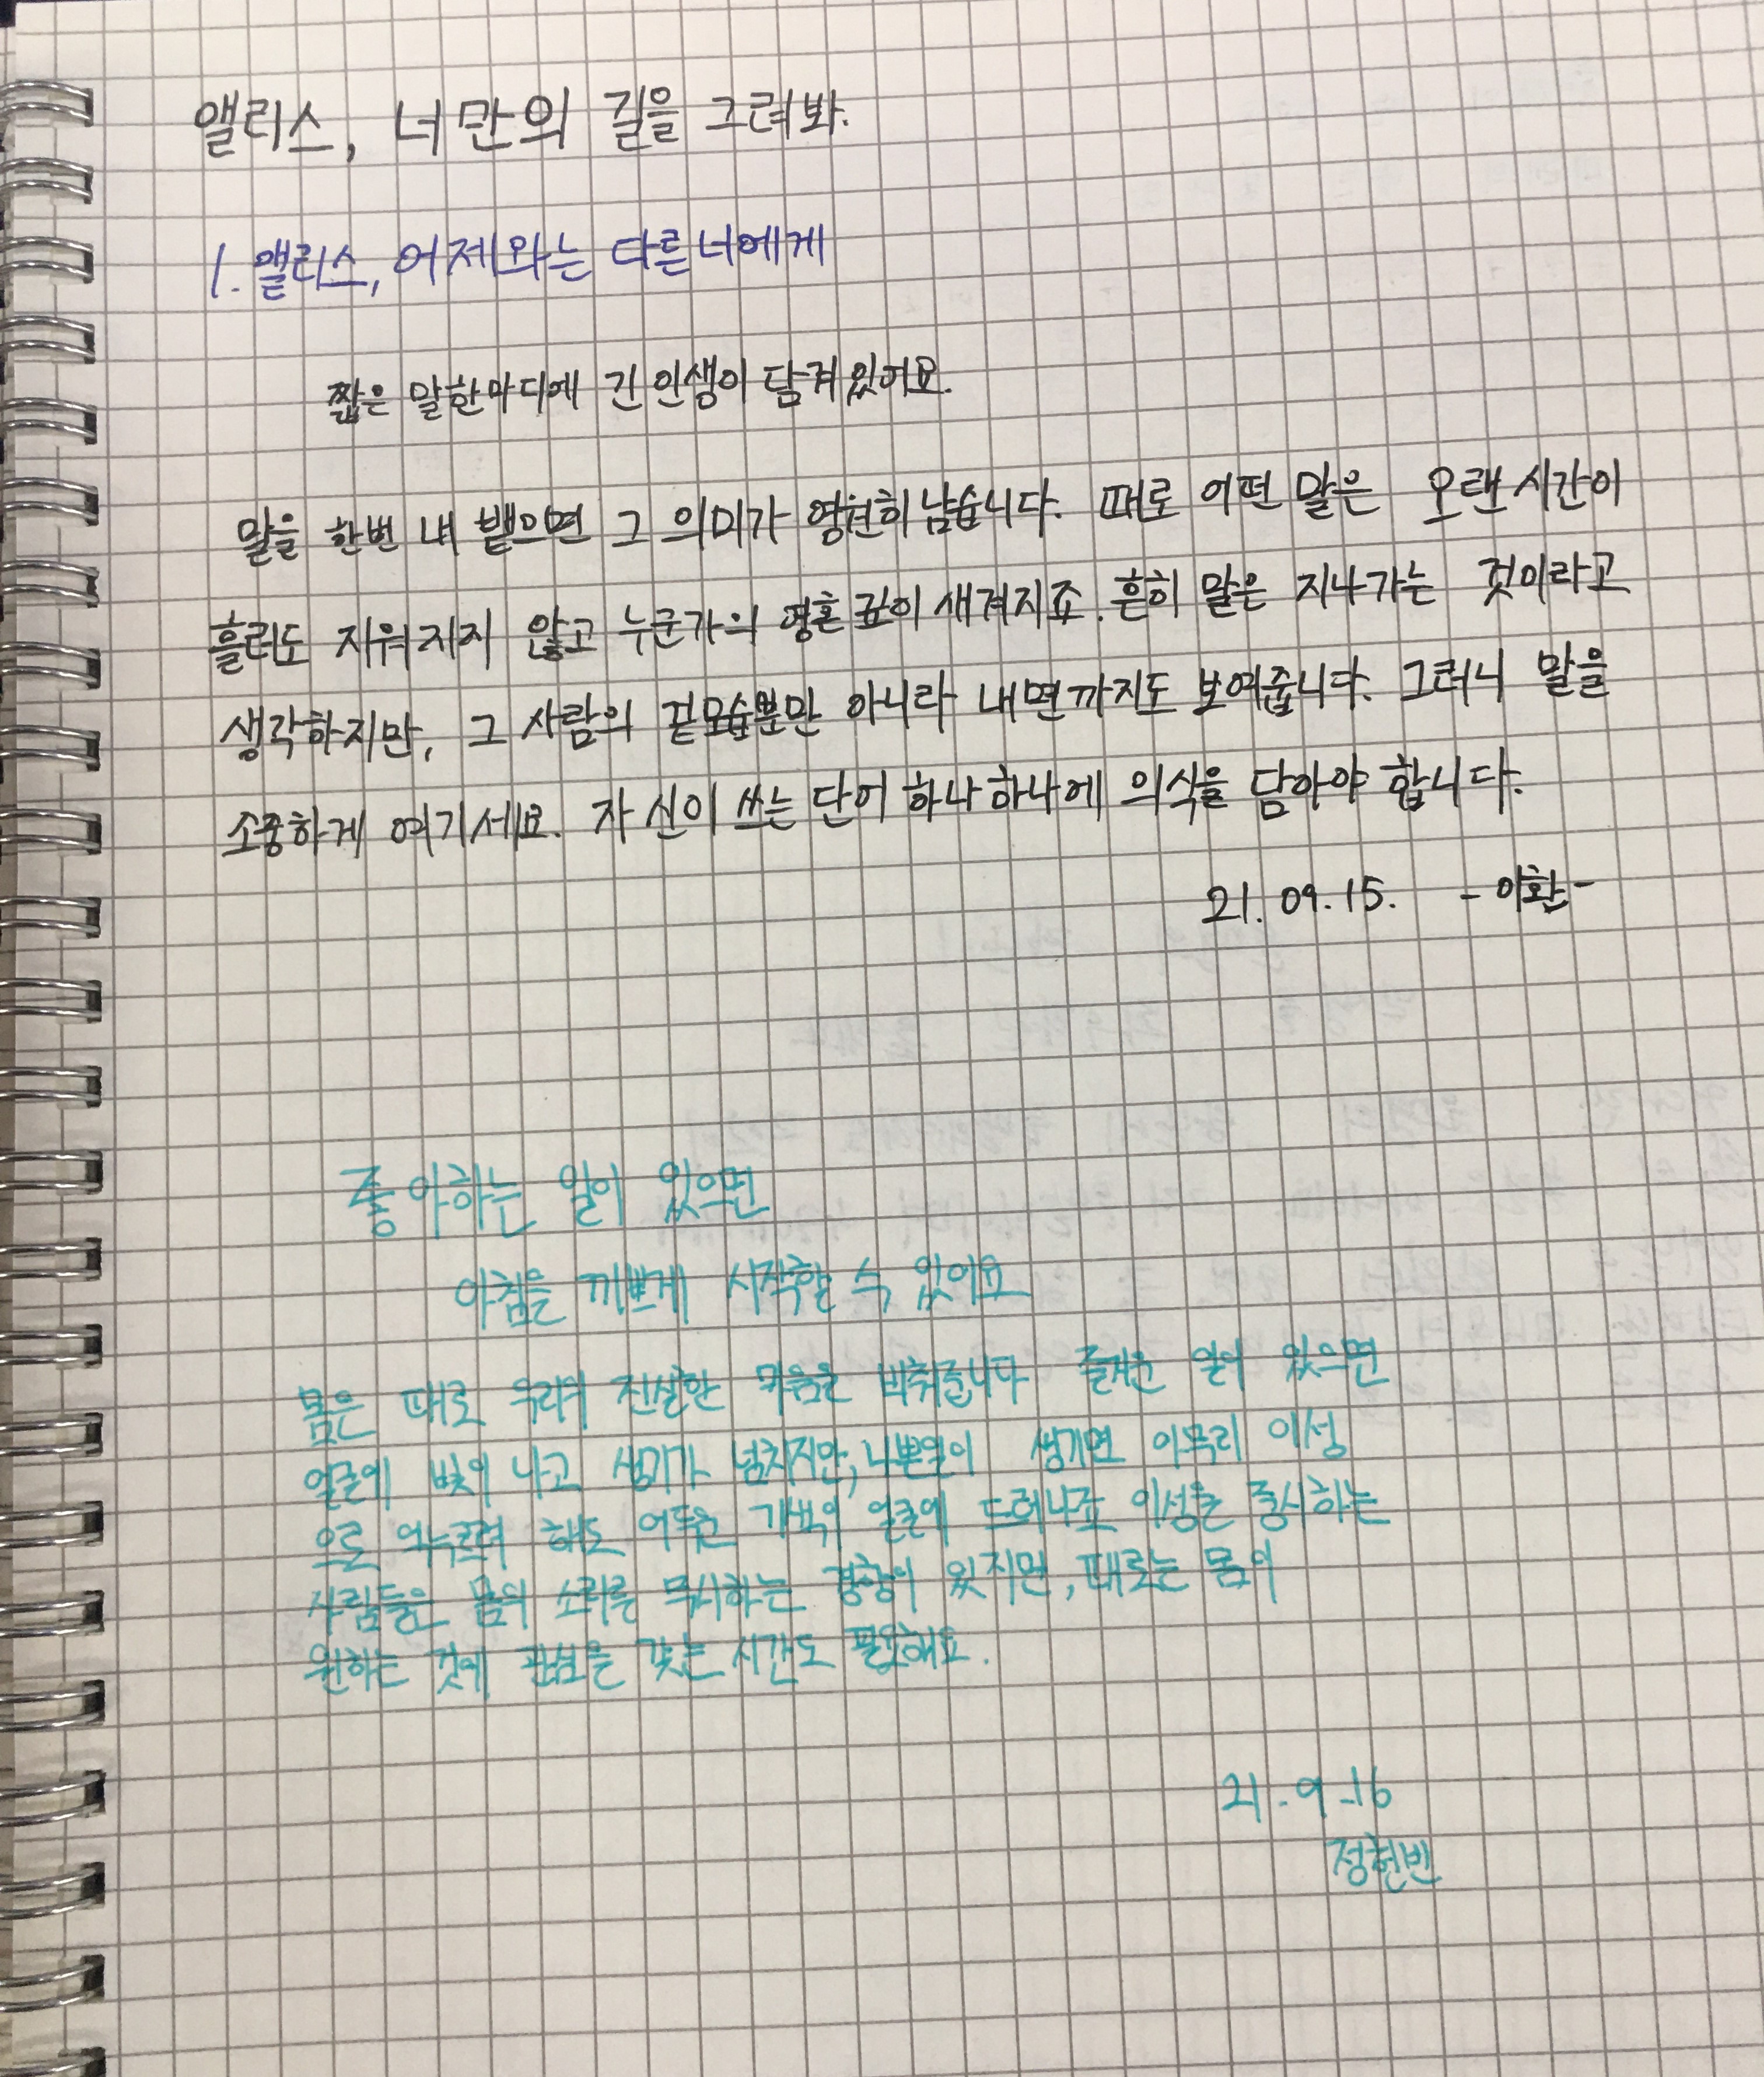 앨리스, 너만의 길을 그려봐.
1. 앨리스, 어제와는 다른 너에게
짧은 말한마디에 긴 인생이 담겨있어요.
말을 한번 내 뱉으면 그 의미가 영원히 남습니다. 때로 어떤 말은 오랜 시간이
흘러도 지워지지 않고 누군가의 영혼 깊이 새겨지죠. 흔히 말은 지나가는 것이라고
생각하지만, 그 사람의 겉모습뿐만 아니라 내면까지도 보여줍니다. 그러니 말을
소중하게 여기세요. 자신이 쓰는 단어 하나하나에 의식을 담아야 합니다.
21. 09. 15. - 이환 -
좋아하는 일이 있으면
아침을 기쁘게 시작할 수 있어요
몸은 때로 우리의 진실한 마음을 비춰줍니다 즐거운 일이 있으면
얼굴에 빛이 나고 생기가 넘치지만, 나쁜일이 생기면 아무리 이성
으로 억누르려 해도 어두운 기색이 얼굴에 드러나죠 이성을 중시하는
사람들은 몸의 소리를 무시하는 경향이 있지만, 때로는 몸이
원하는 것에 관심을 갖는 시간도 필요해요.
21-9-16
정현빈